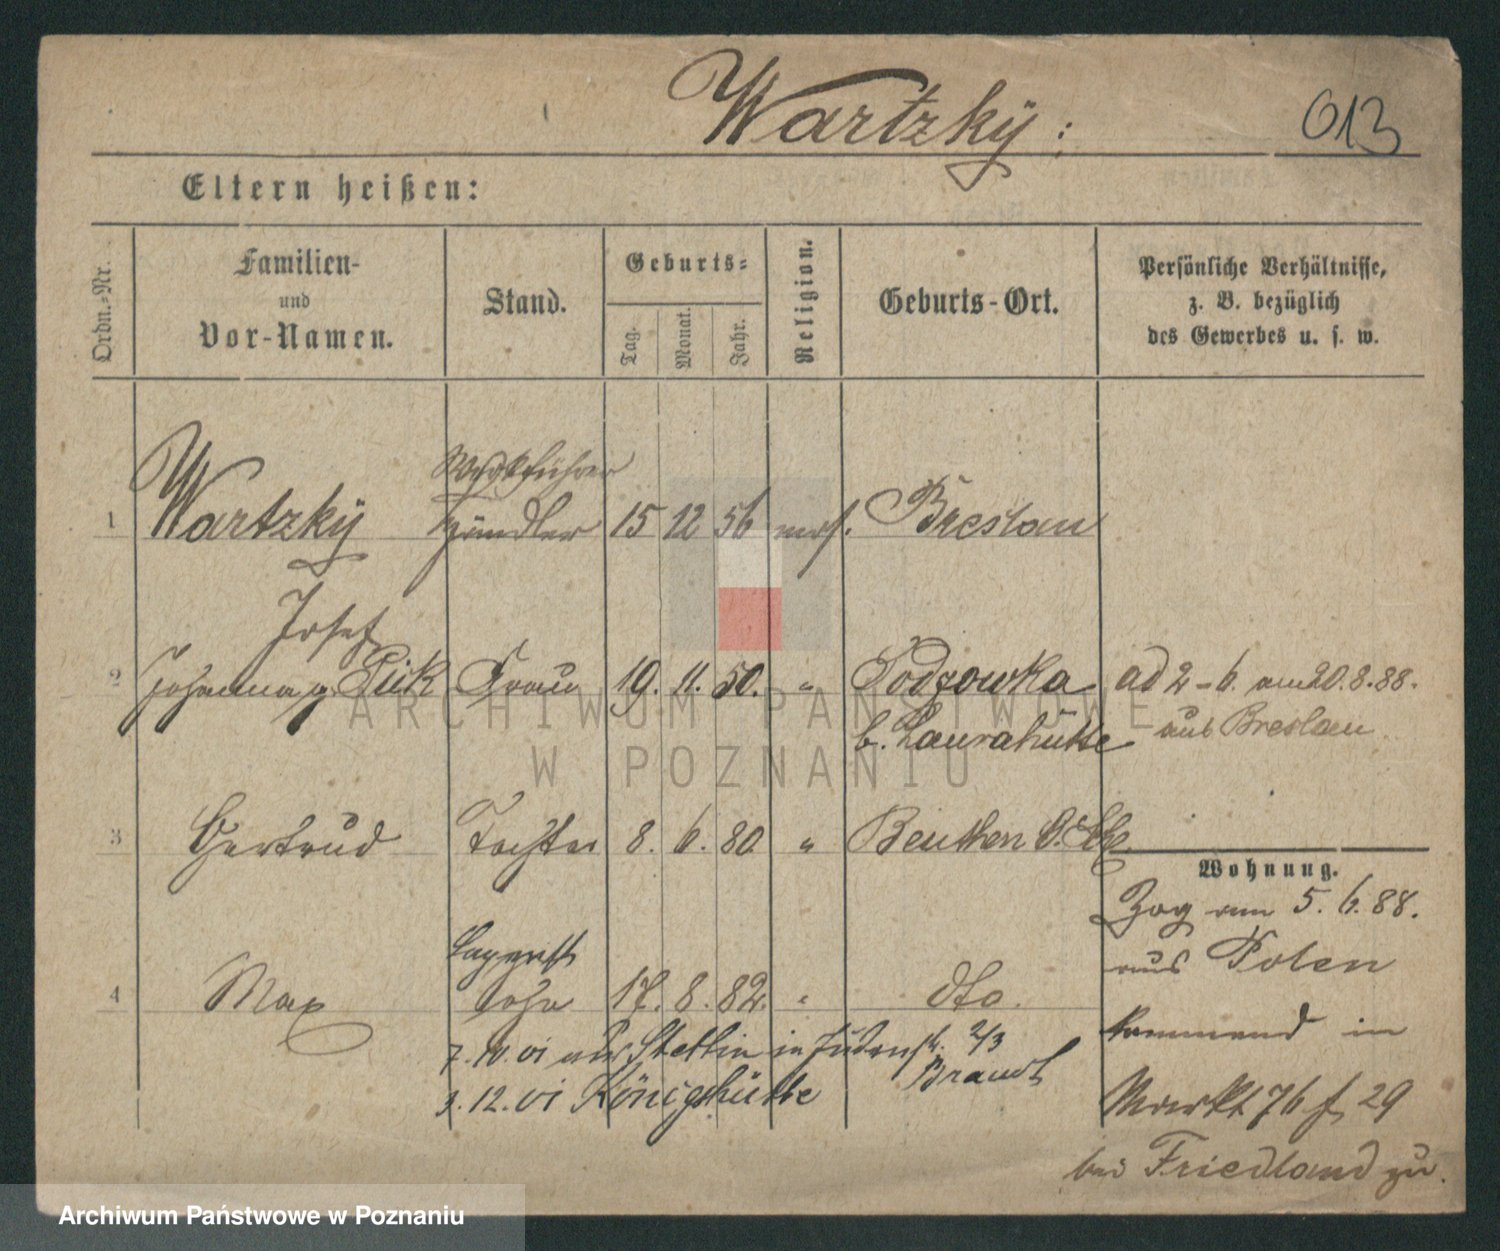 Wartzky:
013
Eltern heißen:
Ordn.-Nr.
Familien-
und
Vor-Namen.
Stand.
Geburts=
Tag.
Monat.
Jahr.
Religion.
Geburts-Ort.
Persönliche Verhältnisse,
z. B. bezüglich
des Gewerbes u. s. w.
Werkführer
1 Wartzky Händler 15 12 56 mos. Breslau
Josef
2 Johanna g. Pick Frau 19. 11. 50. " Todzowka ad 2-6. am 20.8.88.
b. Laurahütte aus Breslau
3 Gertrud Tochter 8. 6. 80 " Beuthen O. Schl.
Wohnung.
Zog am 5. 6. 88.
aus Polen
4 Max Sohn 17. 8. 82. " dto.
kommend in
7. 10. 01 aus Stettin in Judenstr. 2/3
Brandt
3. 12. 01 Königshütte
Markt 76 f 29
bei Friedland zu.
ARCHIWUM PAŃSTWOWE
W POZNANIU
Archiwum Państwowe w Poznaniu